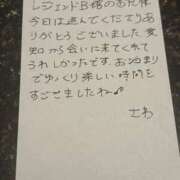 レジェンドB様のお兄様
今日は遊んでくださりあ
りがとうございました 愛
知から会いに来てくれて
うれしかったです お泊まり
でゆっくり楽しい時間を
すごせましたね♪
さわ